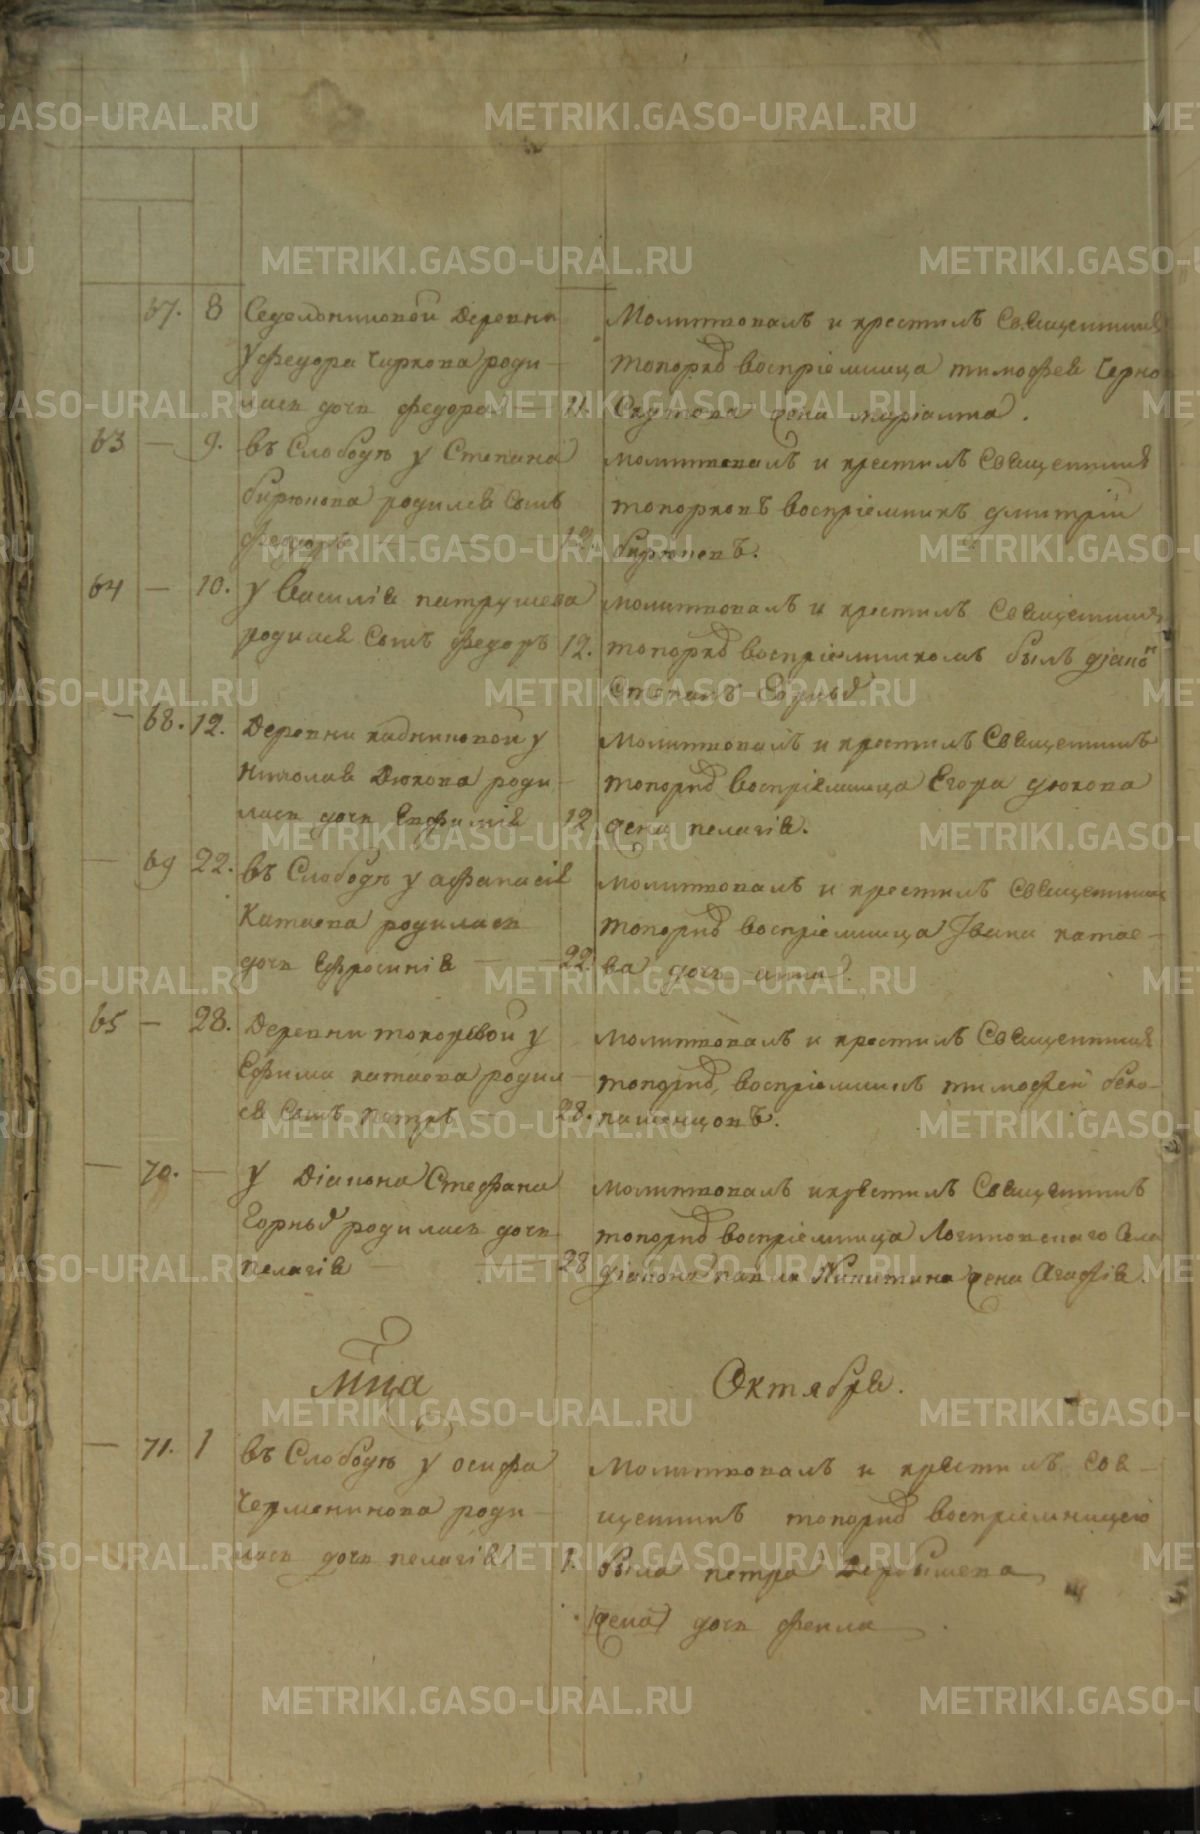 67. 8 Седельниковой деревни
у Федора Чиркова роди-
лась дочь Федора — 11.
Молитвовалъ и крестилъ Священникъ
топорковъ воспріемница тимофея Черно
Скутова жена маріамна.
63 — 9. въ Слободѣ у Степана
бирюкова родился Сынъ
Федоръ — 12.
молитвовалъ и крестилъ Священникъ
топорковъ воспріемникъ дмитрій
бирюковъ.
64 — 10. у Василія патрушева
родился Сынъ Федоръ 12.
молитвовалъ и крестилъ Священникъ
топорковъ воспріемникомъ былъ діаконъ
Степанъ
— 68. 12. Деревни кадниковой у
Николая Дюкова роди-
лась дочь Евфимія 12
молитвовалъ и крестилъ Священникъ
топорковъ воспріемница Егора дюкова
жена пелагія.
— 69 22. въ Слободѣ у афанасія
Катаева родилась
дочь Ефросинія — 22.
молитвовалъ и крестилъ Священникъ
топорковъ воспріемница Івана катае-
ва дочь анна.
65 — 28. Деревни токоревой у
Ефима катаева родил-
ся Сынъ петръ — 28.
молитвовалъ и крестилъ Священникъ
топорковъ, воспріемникъ тимофей бело-
пашенцовъ.
— 70. — у Діакона Стефана
родилась дочь
пелагія — 28
молитвовалъ и крестилъ Священникъ
топорковъ воспріемница Логиновскаго Села
діакона павла Никитина жена Агафія.
мца Октября.
— 71. 1 въ Слободѣ у осифа
Черменинова роди-
лась дочь пелагія 1.
Молитвовалъ и крестилъ Свя-
щенникъ топорковъ воспріемницею
была петра Дербышева
жена дочь фекла
METRIKI.GASO-URAL.RU